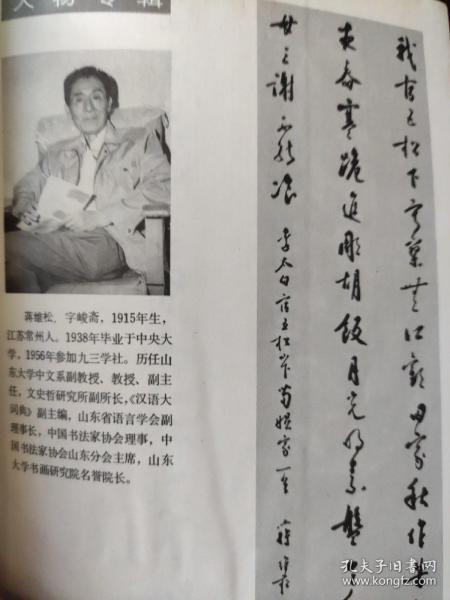 人物专辑
蒋维松，字峻斋，1915年生，
江苏常州人。1938年毕业于中央大
学，1956年参加九三学社。历任山
东大学中文系副教授、教授、副主
任，文史哲研究所副所长，《汉语大
词典》副主编，山东省语言学会副
理事长，中国书法家协会理事，中
国书法家协会山东分会主席，山东
大学书画研究院名誉院长。
我宿五松下寂寥无所欢田家秋作苦
女夜舂寒跪进雕胡饭月光明素盘
母三谢不能飡
李太白宿五松山下荀媪家一首
蒋维松
孔夫子旧书网
www.kongfz.com